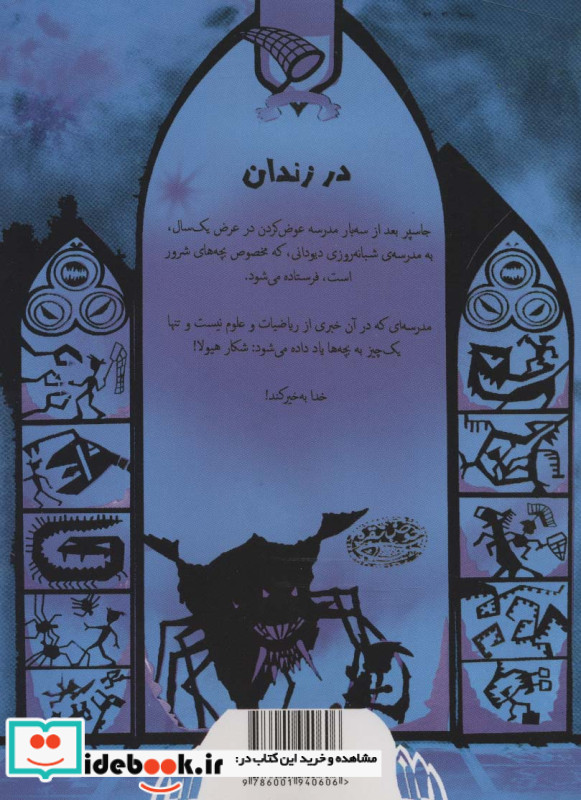 در زندان
جاسپر بعد از سه‌بار مدرسه عوض‌کردن در عرض یک‌سال،
به مدرسه‌ی شبانه‌روزی دیودانی، که مخصوص بچه‌های شرور
است، فرستاده می‌شود.
مدرسه‌ای که در آن خبری از ریاضیات و علوم نیست و تنها
یک‌چیز به بچه‌ها یاد داده می‌شود: شکار هیولا!
خدا به‌خیر کند!
مشاهده و خرید این کتاب در:
idebook.ir
9 786001 940606